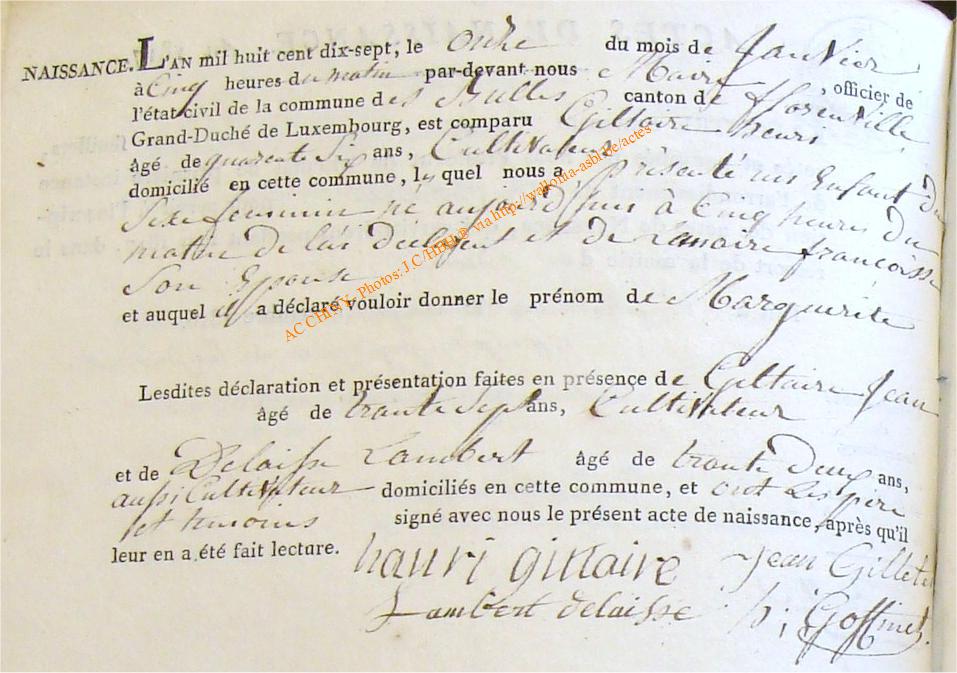 NAISSANCE. L'AN mil huit cent dix-sept, le onze du mois de janvier
à cinq heures du matin par-devant nous Maire, officier de
l'état civil de la commune des Bulles canton de florenville
Grand-Duché de Luxembourg, est comparu Giltaire henri
âgé de quarente six ans, Cultivateur
domicilié en cette commune, lequel nous a présenté un Enfant du
Sexe feminin né aujourd'huis à Cinq heures du
matin de lui declarant et de Lamaire françoisse
Son Epouse
et auquel il a déclaré vouloir donner le prénom de Marguerite
Lesdites déclaration et présentation faites en présence de Giltaire Jean
âgé de trante Sept ans, Cultivateur
et de Delaisse Lambert âgé de trante deux ans,
aussi Cultivateur domiciliés en cette commune, et ont Les père
et temoins signé avec nous le présent acte de naissance, après qu'il
leur en a été fait lecture.
hanri giltaire Jean Gillet
Lambert delaisse h; Goffinet.
AC CHINY - Photos: J.C/HDH.® via http://wallonia-asbl.be/actes